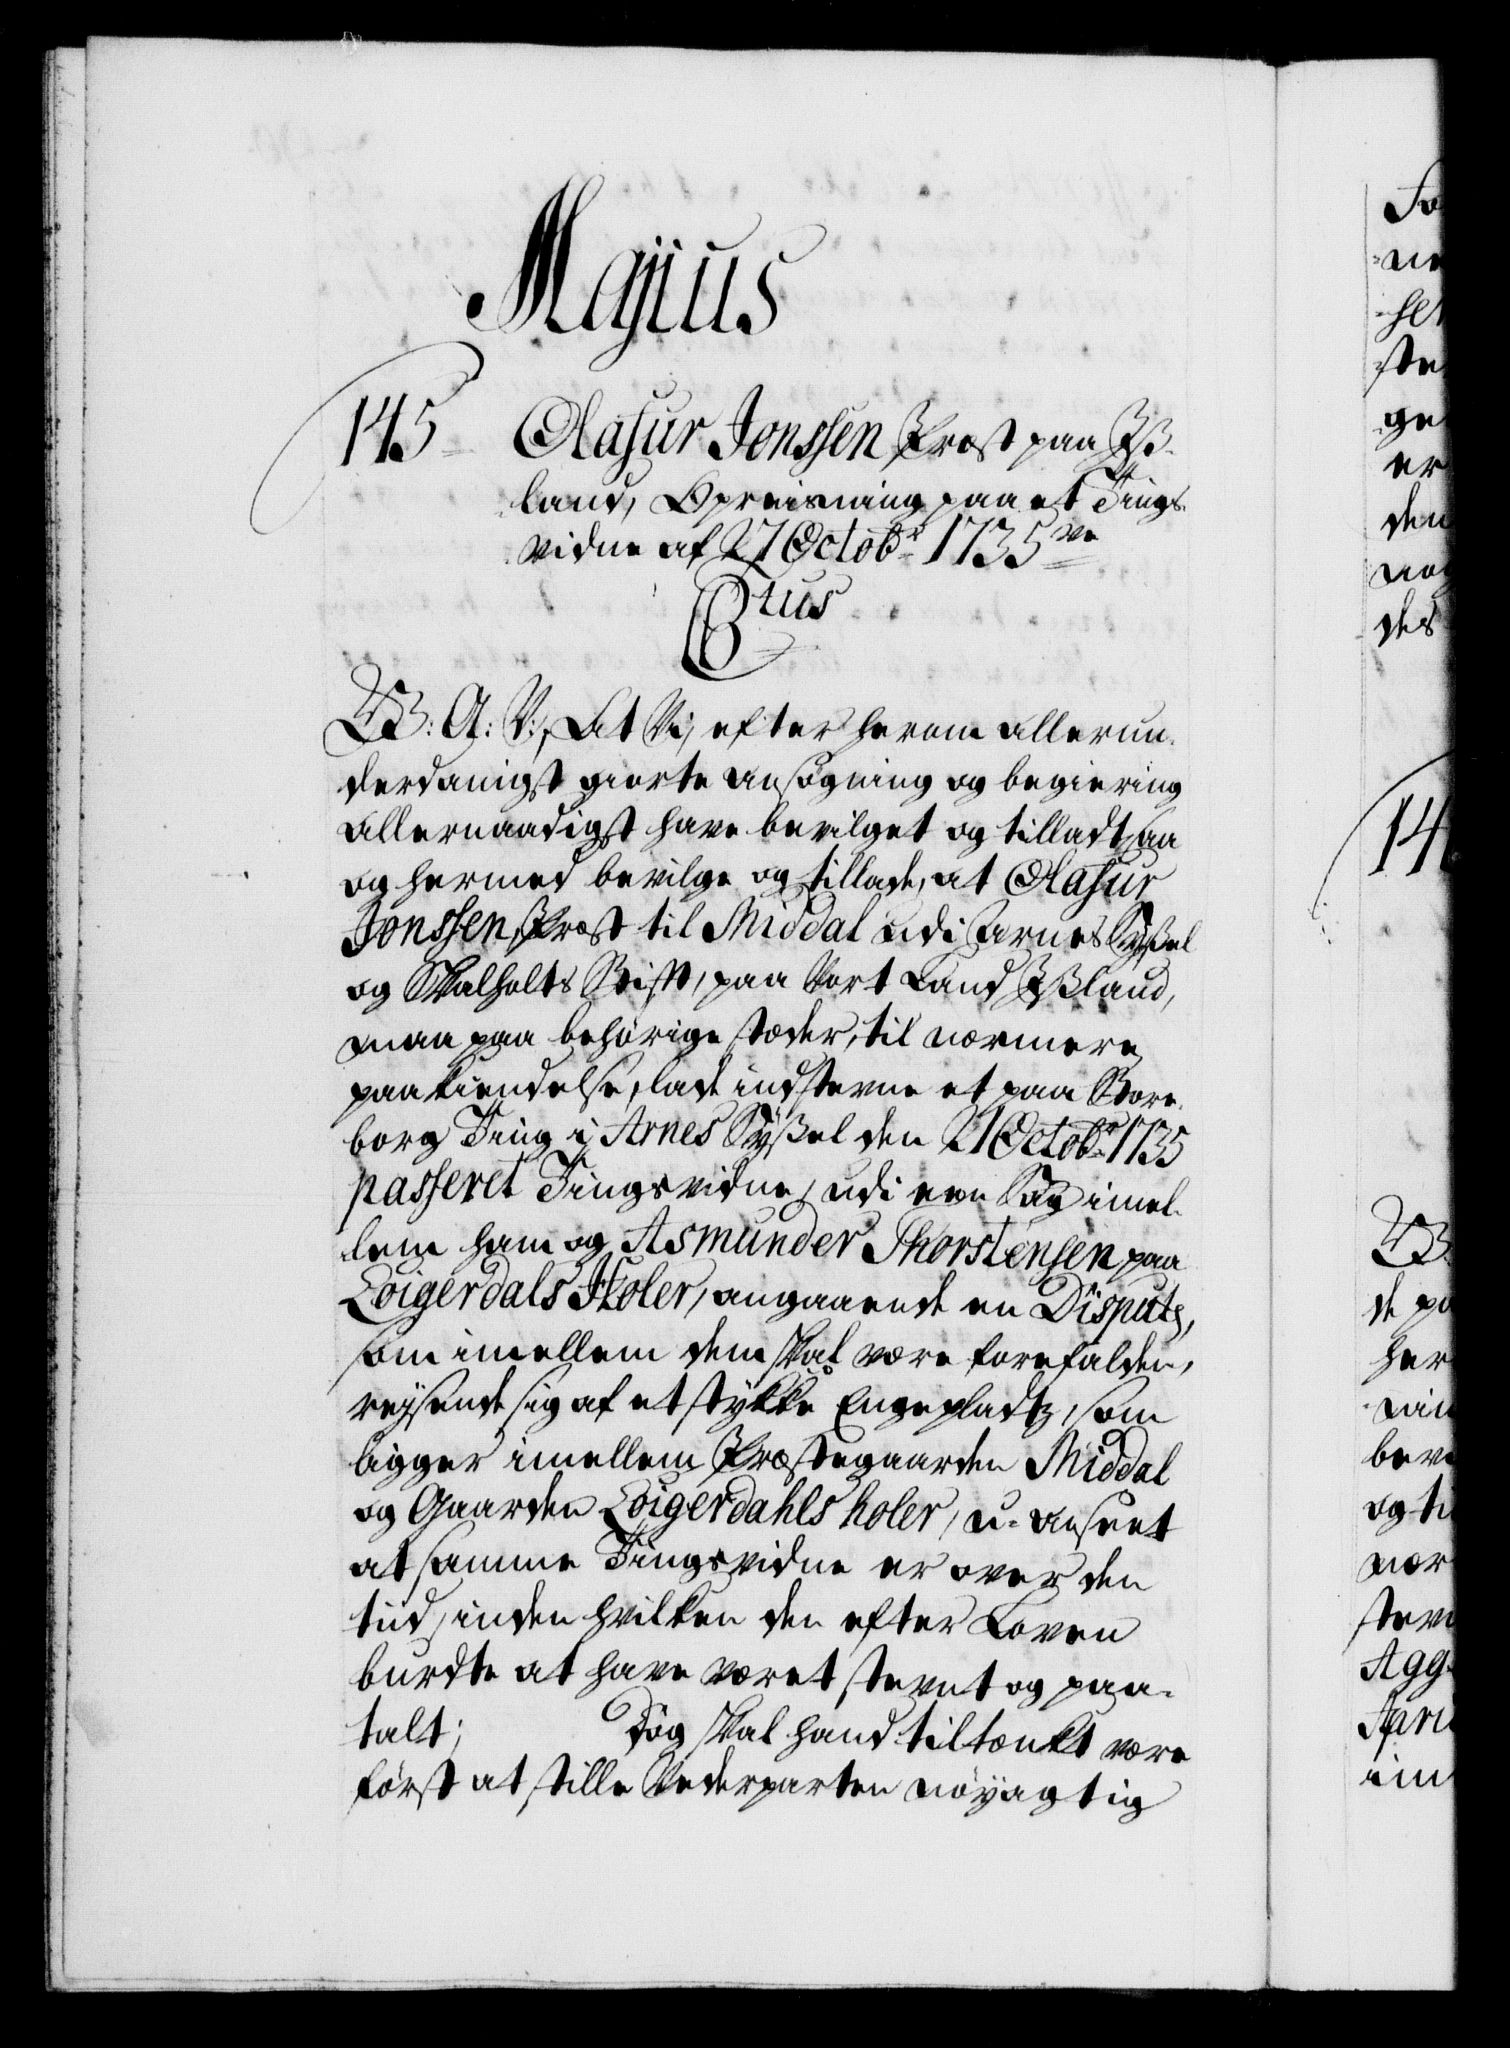 Majius
145 Olafur Jonssen Præst paa Iß-
land, Opreisning paa et Tings-
vidne af 27 Octobr 1735 ve
Ctus
W: A: V:, At Vi, efter herom allerun-
derdanigst giorte ansøgning og begiering
allernaadigst have bevilget og tilladt, saa
og hermed bevilge og tillade, at Olafur
Jonssen, Præst til Middal udi Arnes Syßel
og Skalholts Stift, paa Vort Land Ißland,
maa paa behörige stæder, til nærmere
paakiendelse, lade indstevne et paa Bore-
borg Ting i Arnes Syßel den 27 Octobr 1735
passeret Tingsvidne, udi een Sag imel-
lem ham og Asmunder Thorstensen paa
Loigerdals Holer, angaaende en Dispute,
som imellem dem skal være forefalden,
reysende sig af et stykke Engepladtz, som
ligger imellem Præstegaarden Middal
og Gaarden Loigerdahls holer, u-anseet
at samme Tingsvidne er over den
tiid, inden hvilken den efter Loven
burdte at have været stevnt og paa-
talt; Dog skal hand tiltænkt være
først at stille Vederparten nöyagtig